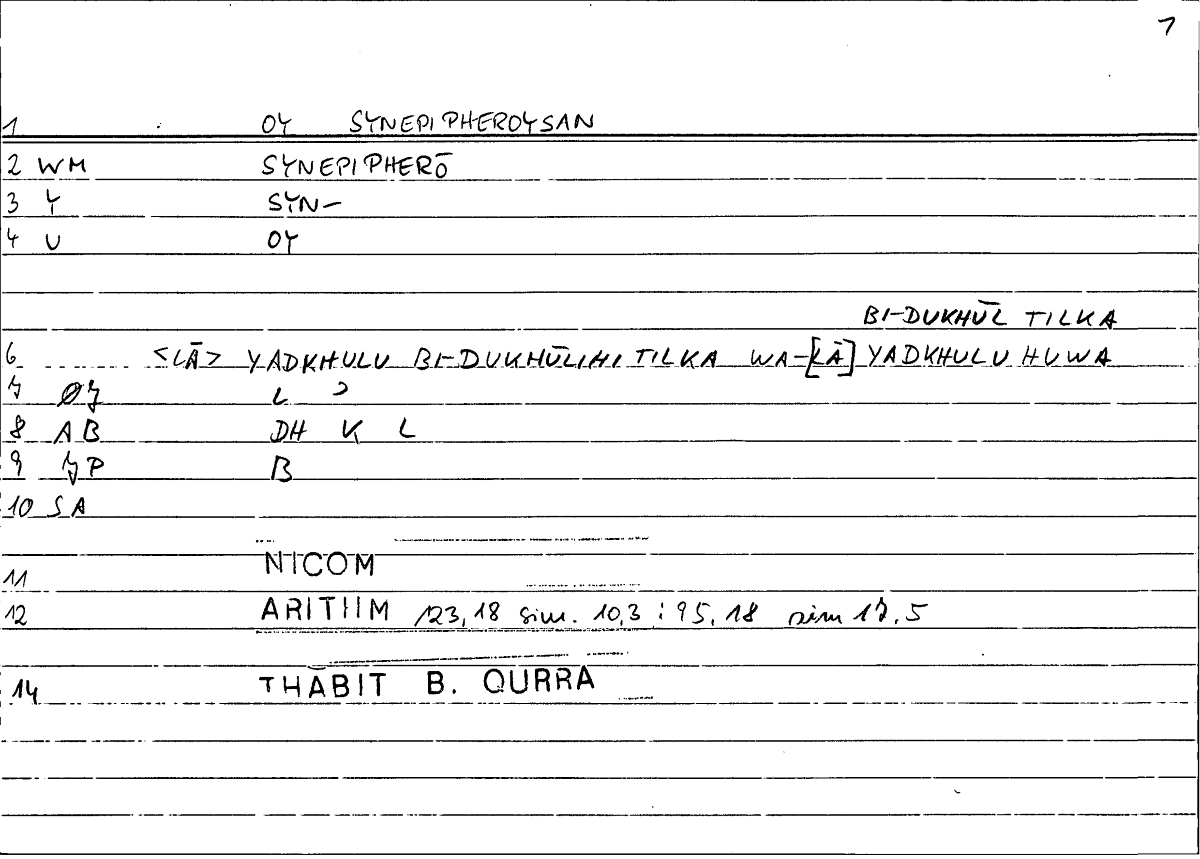 1
1 OY SYNEPIPHEROYSAN
2 WM SYNEPIPHERŌ
3 Y SYN-
4 U OY
BI-DUKHŪL TILKA
6 <LĀ> YADKHULU BI-DUKHŪLIHI TILKA WA-[LĀ] YADKHULU HUWA
7 L ʾ
8 AB DH K L
9 B
10 SA
11 NICOM
12 ARITIIM 123,18 sim. 10,3 : 95,18 sim 17,5
14 THĀBIT B. QURRA